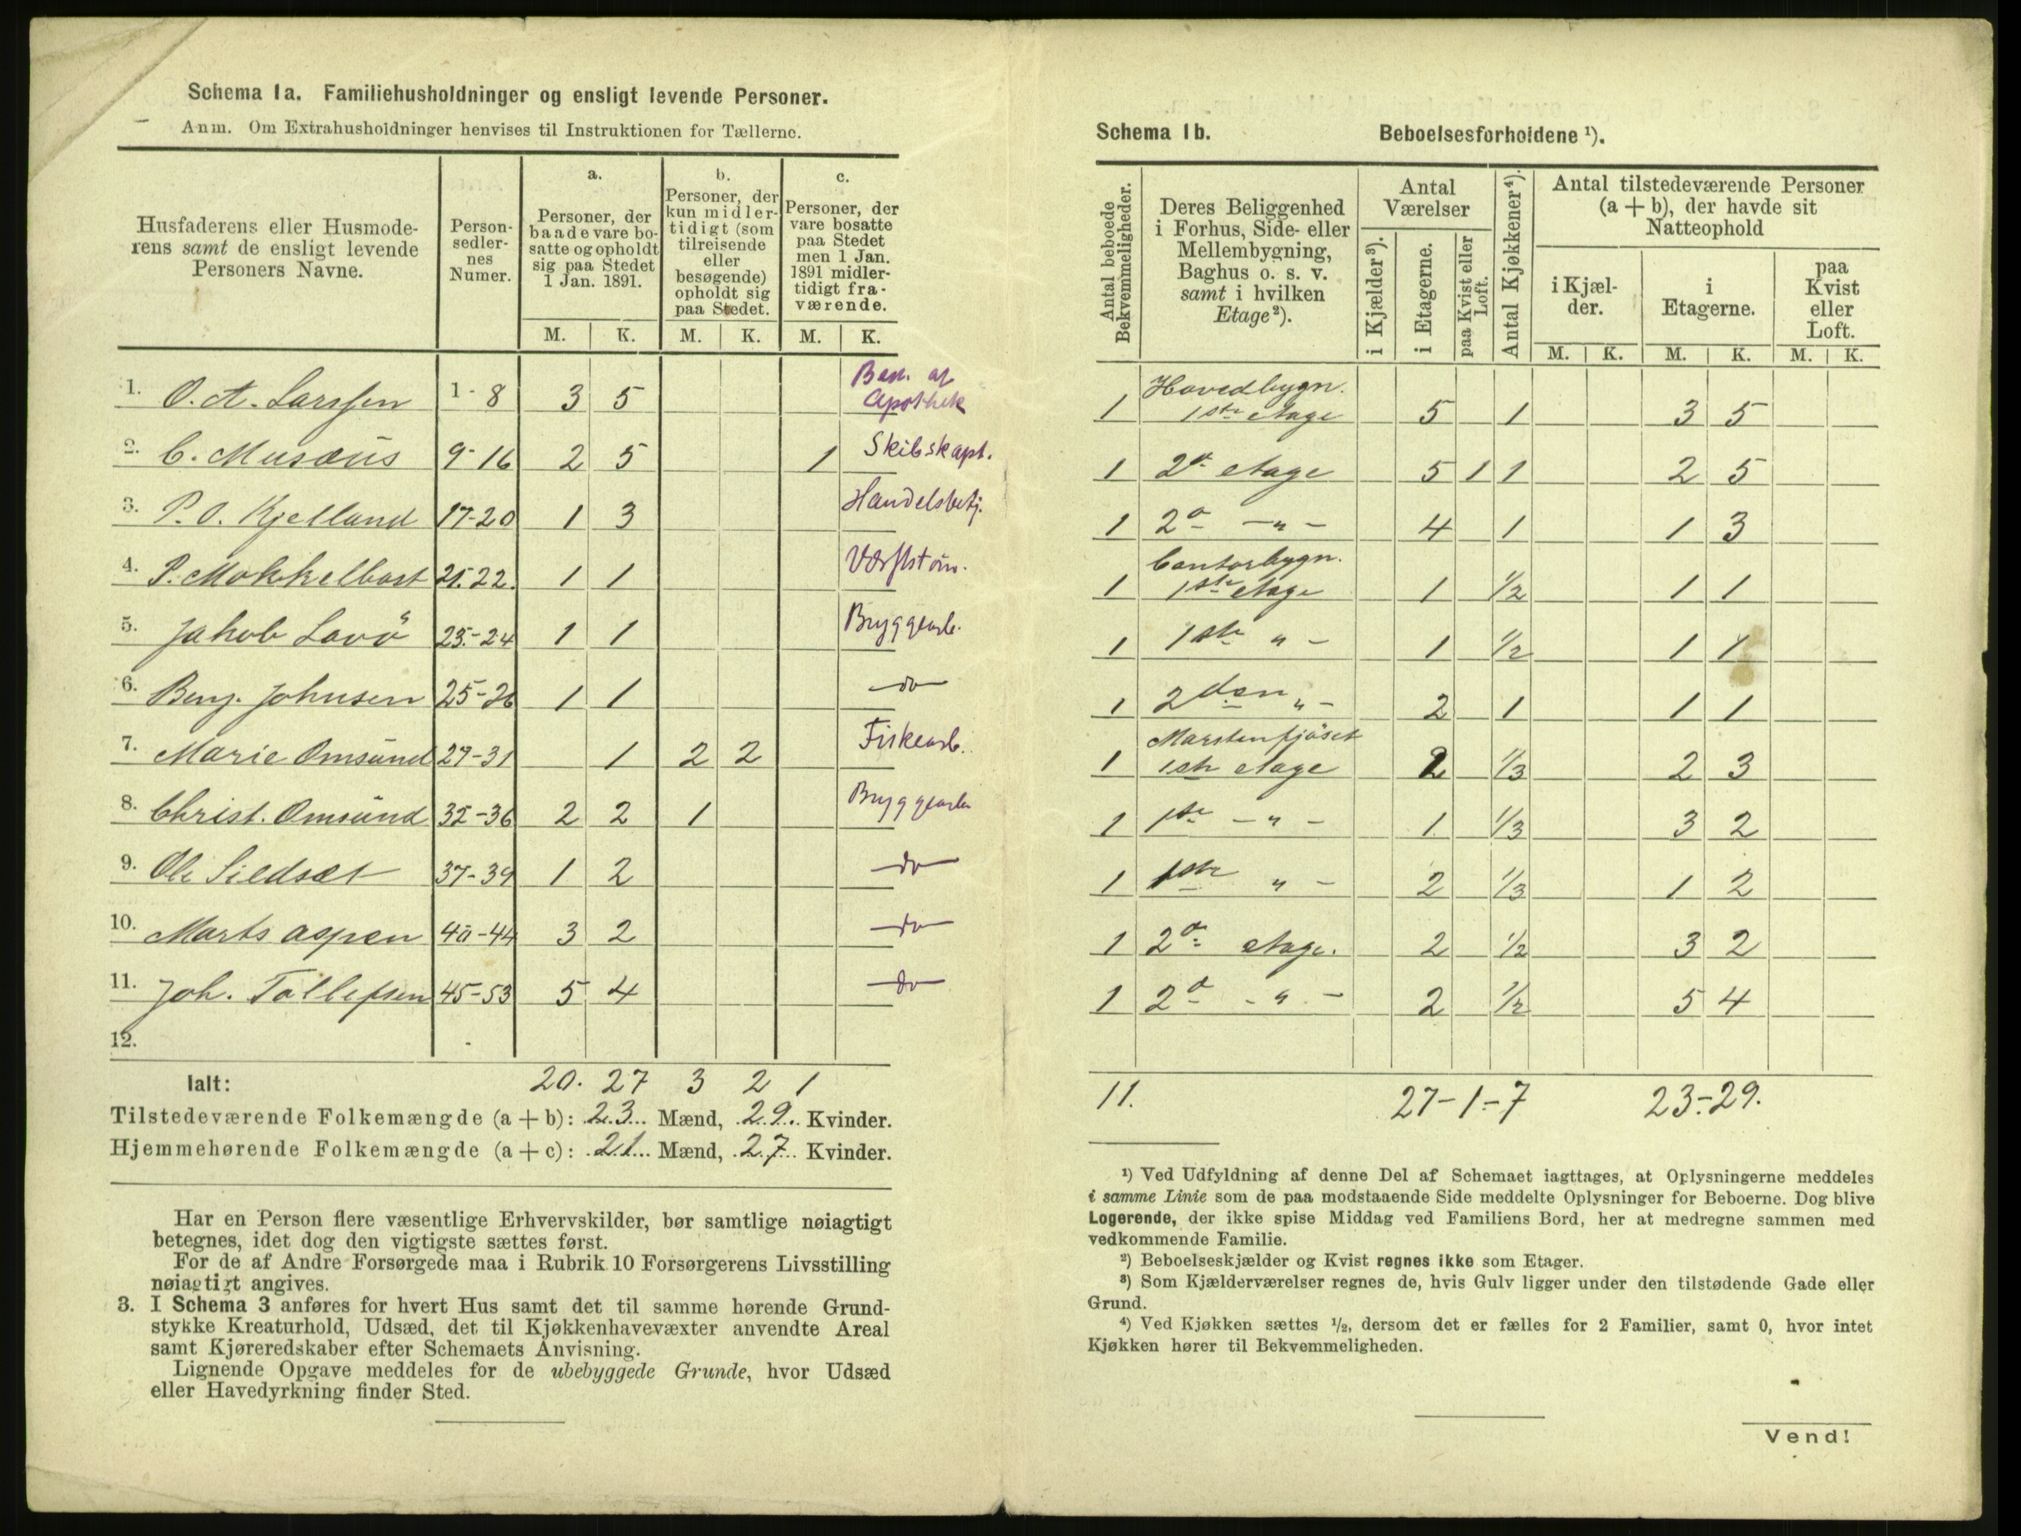 Schema 1a. Familiehusholdninger og ensligt levende Personer.
Anm. Om Extrahusholdninger henvises til Instruktionen for Tællerne.
Husfaderens eller Husmoderens samt de ensligt levende Personers Navne.
Personsedlernes Numer.
a. Personer, der baade vare bosatte og opholdt sig paa Stedet 1 Jan. 1891.
b. Personer, der kun midlertidigt (som tilreisende eller besøgende) opholdt sig paa Stedet.
c. Personer, der vare bosatte paa Stedet men 1 Jan. 1891 midlertidigt fraværende.
M. K. M. K. M. K.
1. O. A. Larssen 1-8 3 5 Best. af Apothek
2. C. Musæus 9-16 2 5 1 Skibskapt.
3. P. O. Kjelland 17-20 1 3 Handelsbetj.
4. P. Mokkelbost 21.22. 1 1 Værftstøm.
5. Jakob Lovö 23.-24 1 1 Bryggearb.
6. Benj. Johnsen 25-26 1 1 do
7. Marie Omsund 27-31 1 2 2 Fiskearb.
8. Christ. Omsund 32-36 2 2 1 Bryggearb
9. Ole Sildsæt 37-39 1 2 do
10. Marts aspen 40-44 3 2 do
11. Joh. Tollefsen 45-53 5 4 do
12.
Ialt: 20. 27 3 2 1
Tilstedeværende Folkemængde (a + b): 23 Mænd, 29. Kvinder.
Hjemmehørende Folkemængde (a + c): 21 Mænd, 27 Kvinder.
Har en Person flere væsentlige Erhvervskilder, bør samtlige nøiagtigt
betegnes, idet dog den vigtigste sættes først.
For de af Andre Forsørgede maa i Rubrik 10 Forsørgerens Livsstilling
nøiagtigt angives.
3. I Schema 3 anføres for hvert Hus samt det til samme hørende Grund-
stykke Kreaturhold, Udsæd, det til Kjøkkenhavevæxter anvendte Areal
samt Kjøreredskaber efter Schemaets Anvisning.
Lignende Opgave meddeles for de ubebyggede Grunde, hvor Udsæd
eller Havedyrkning finder Sted.
Schema 1b. Beboelsesforholdene ¹).
Antal beboede Bekvemmeligheder.
Deres Beliggenhed i Forhus, Side- eller Mellembygning, Baghus o. s. v. samt i hvilken Etage²).
Antal Værelser
i Kjælder³). i Etagerne. paa Kvist eller Loft.
Antal Kjøkkener⁴).
Antal tilstedeværende Personer (a + b), der havde sit Natteophold
i Kjælder. i Etagerne. paa Kvist eller Loft.
M. K. M. K. M. K.
Hovedbygn.
1 1ste etage 5 1 3 5
1 2d etage 5 1 1 2 5
1 2d - " - 4 1 1 3
Contorbygn.
1 1ste etage 1 1/2 1 1
1 1ste " - 1 1/2 1 1
1 2den " - 2 1 1 1
Marstenfjöset
1 1ste etage 2 1/3 2 3
1 1ste - " - 1 1/3 3 2
1 1ste " - 2 1/3 1 2
1 2d etage. 2 1/2 3 2
1 2d - " - 2 1/2 5 4
11. 27-1-7 23-29.
¹) Ved Udfyldning af denne Del af Schemaet iagttages, at Oplysningerne meddeles
i samme Linie som de paa modstaaende Side meddelte Oplysninger for Beboerne. Dog blive
Logerende, der ikke spise Middag ved Familiens Bord, her at medregne sammen med
vedkommende Familie.
²) Beboelseskjælder og Kvist regnes ikke som Etager.
³) Som Kjælderværelser regnes de, hvis Gulv ligger under den tilstødende Gade eller
Grund.
⁴) Ved Kjøkken sættes 1/2, dersom det er fælles for 2 Familier, samt 0, hvor intet
Kjøkken hører til Bekvemmeligheden.
Vend!